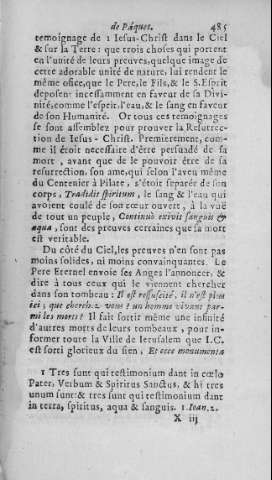 de Pâques. 485
temoignage de 1 Iesus-Christ dans le Ciel
& sur la Terre: que trois choses qui portent
en l'unité de leurs preuves, quelque image de
cette adorable unité de nature, lui rendent le
même ofice, que le Pere, le Fils, & le S. Esprit
deposent incessamment en faveur de sa Divi-
nité, comme l'esprit, l'eau, & le sang en faveur
de son Humanité. Or tous ces temoignages
se sont assemblez pour prouver la Resurrec-
tion de Jesus-Christ. Premierement, com-
me il étoit necessaire d'être persuadé de sa
mort, avant que de le pouvoir être de sa
resurrection, son ame, qui selon l'aveu même
du Centenier à Pilate, s'étoit separée de son
corps, Tradidit spiritum, le sang & l'eau qui
avoient coulé de son cœur ouvert, à la vuë
de tout un peuple, Continuò exivit sanguis &
aqua, sont des preuves certaines que sa mort
est veritable.
Du côté du Ciel, les preuves n'en sont pas
moins solides, ni moins convainquantes. Le
Pere Eternel envoie ses Anges l'annoncer, &
dire à tous ceux qui le viennent cherchez
dans son tombeau: Il est ressuscité, il n'est plus
ici; que cherchez vous? un homme vivant par-
mi les morts? Il fait sortir même une infinité
d'autres morts de leurs tombeaux, pour in-
former toute la Ville de Ierusalem que I.C.
est sorti glorieux du sien, Et ecce monumenta
1 Tres sunt qui testimonium dant in cœlo
Pater, Verbum & Spiritus Sanctus, & hi tres
unum sunt: & tres sunt qui testimonium dant
in terra, spiritus, aqua & sanguis. 1. Ioan. 2.
X iij